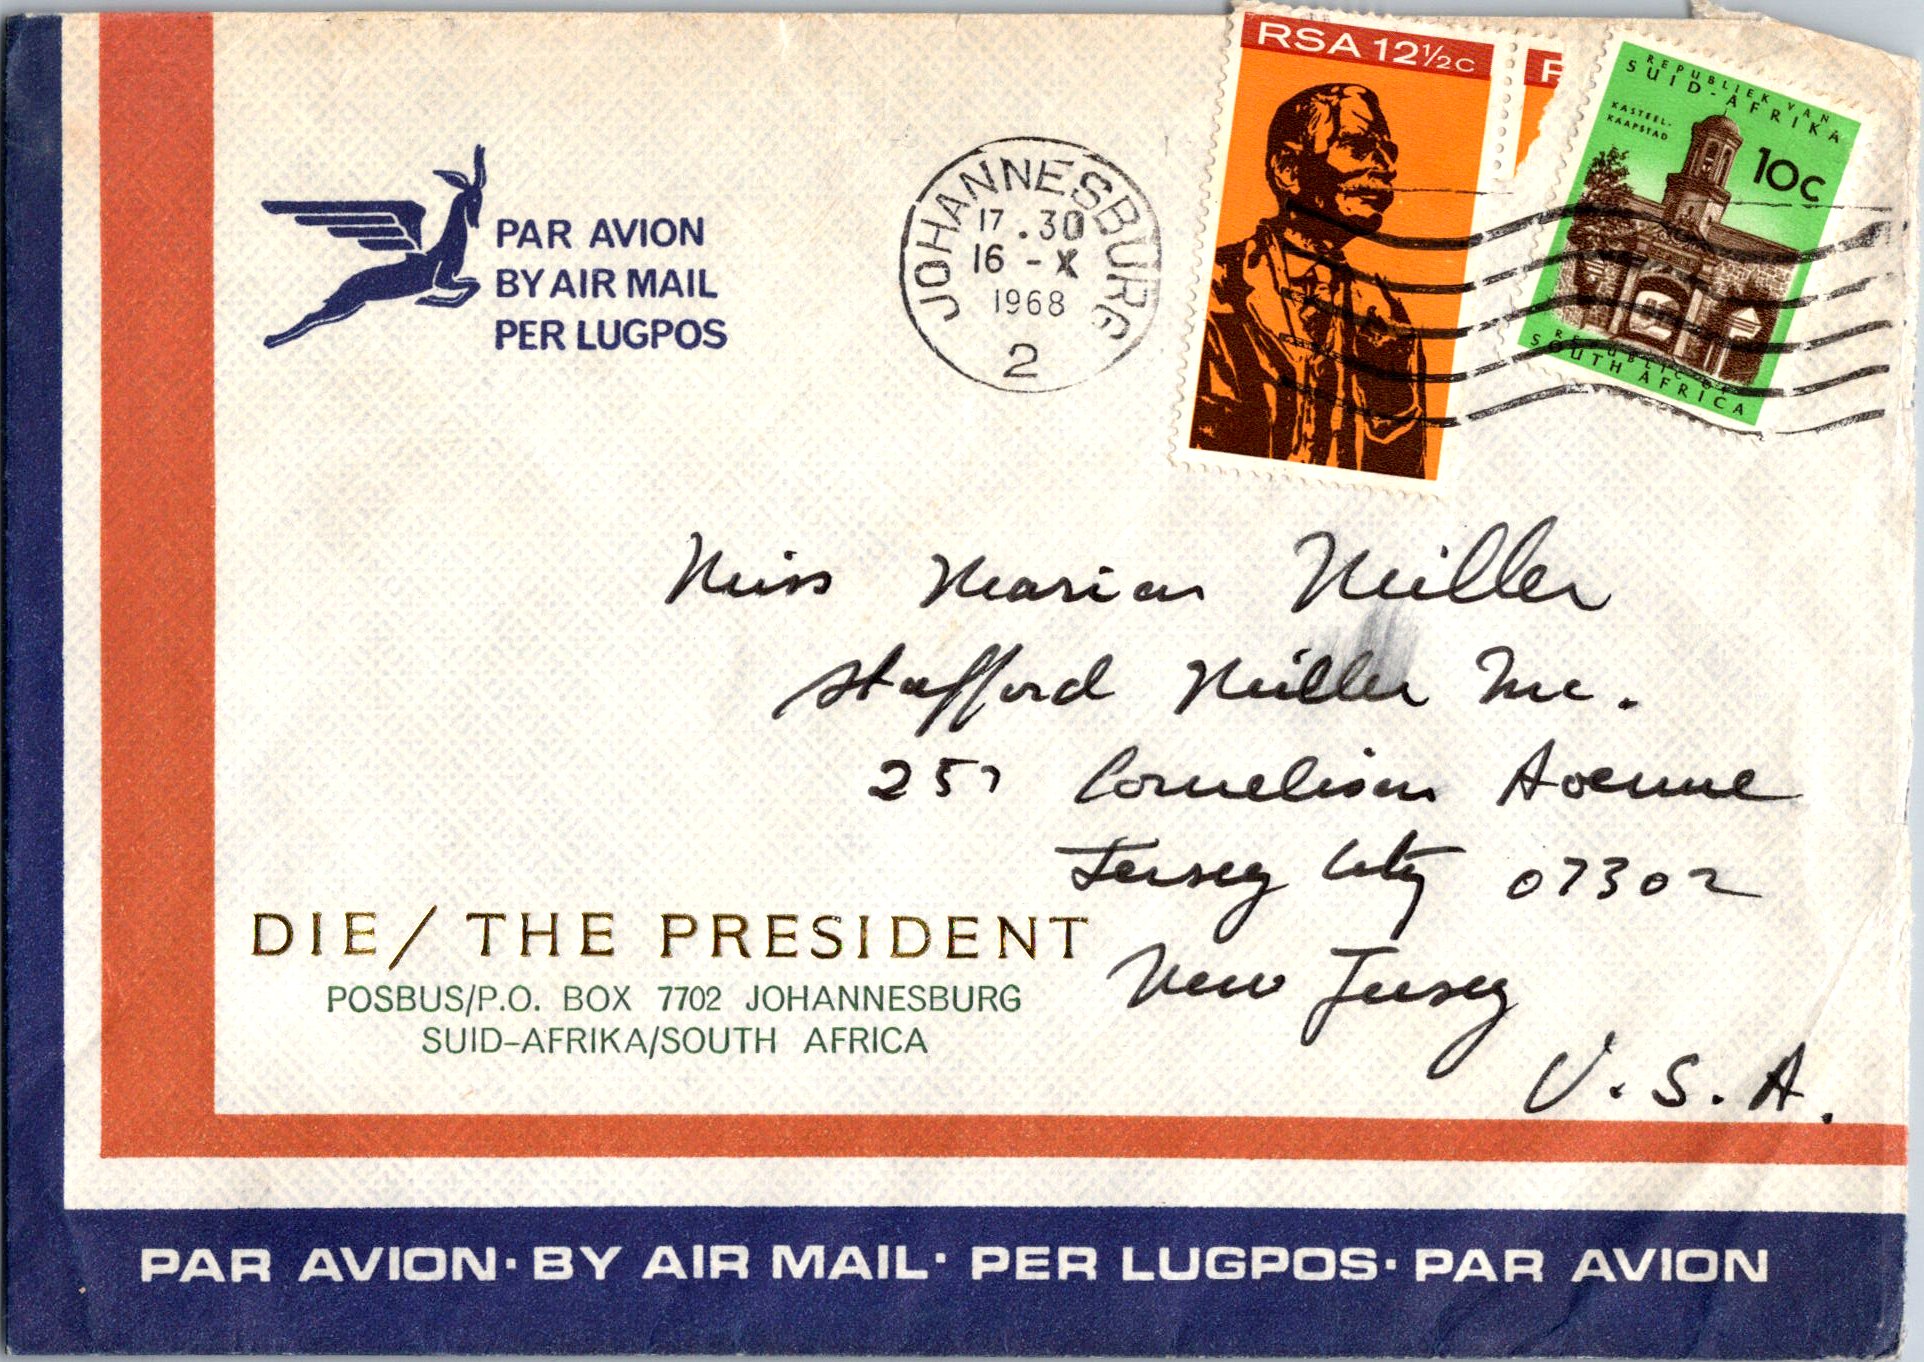 RSA 12½c
R
REPUBLIEK VAN
SUID-AFRIKA
KASTEEL-
KAAPSTAD
10c
REPUBLIC OF
SOUTH AFRICA
JOHANNESBURG
17.30
16 - X
1968
2
PAR AVION
BY AIR MAIL
PER LUGPOS
Miss Marian Miller
Stafford Miller Inc.
257 Cornelison Avenue
Jersey City 07302
New Jersey
U.S.A.
DIE/THE PRESIDENT
POSBUS/P.O. BOX 7702 JOHANNESBURG
SUID-AFRIKA/SOUTH AFRICA
PAR AVION · BY AIR MAIL · PER LUGPOS · PAR AVION